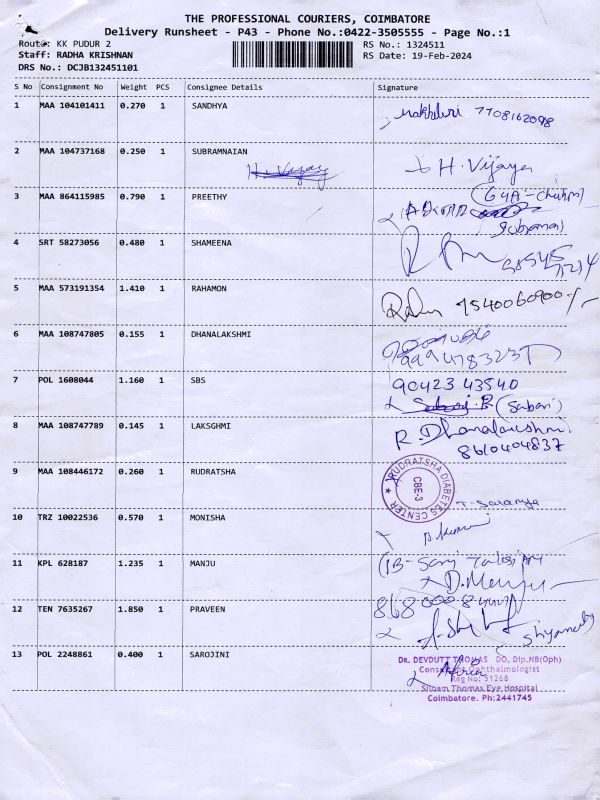 THE PROFESSIONAL COURIERS, COIMBATORE
Delivery Runsheet - P43 - Phone No.:0422-3505555 - Page No.:1
Route: KK PUDUR 2 RS No.: 1324511
Staff: RADHA KRISHNAN RS Date: 19-Feb-2024
DRS No.: DCJB132451101
S No Consignment No Weight PCS Consignee Details Signature
1 MAA 104101411 0.270 1 SANDHYA
7708162098
2 MAA 104737168 0.250 1 SUBRAMNAIAN
H. Vijaya
3 MAA 864115985 0.790 1 PREETHY
4 SRT 58273056 0.480 1 SHAMEENA
5 MAA 573191354 1.410 1 RAHAMON
7540060900/-
6 MAA 108747805 0.155 1 DHANALAKSHMI
7 POL 1608044 1.160 1 SBS
90423 43540
(Sabari)
8 MAA 108747789 0.145 1 LAKSGHMI
R. Dhanalakshmi
8610404837
9 MAA 108446172 0.260 1 RUDRATSHA
RUDRATSHA DIABETES CENTER
CBE-3
T. Saranya
10 TRZ 10022536 0.570 1 MONISHA
11 KPL 628187 1.235 1 MANJU
12 TEN 7635267 1.850 1 PRAVEEN
13 POL 2248861 0.400 1 SAROJINI
DR. DEVDUTT THOMAS DO, Dip.NB(Oph)
Consultant Ophthalmologist
Reg No: 51268
Siloam Thomas Eye Hospital
Coimbatore. Ph:2441745